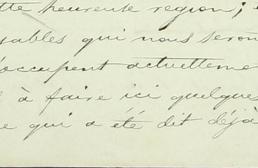 tte heureuse region;
sables qui nous seron
occupent actuelleme
à faire ici quelque
e qui a été dit déjà